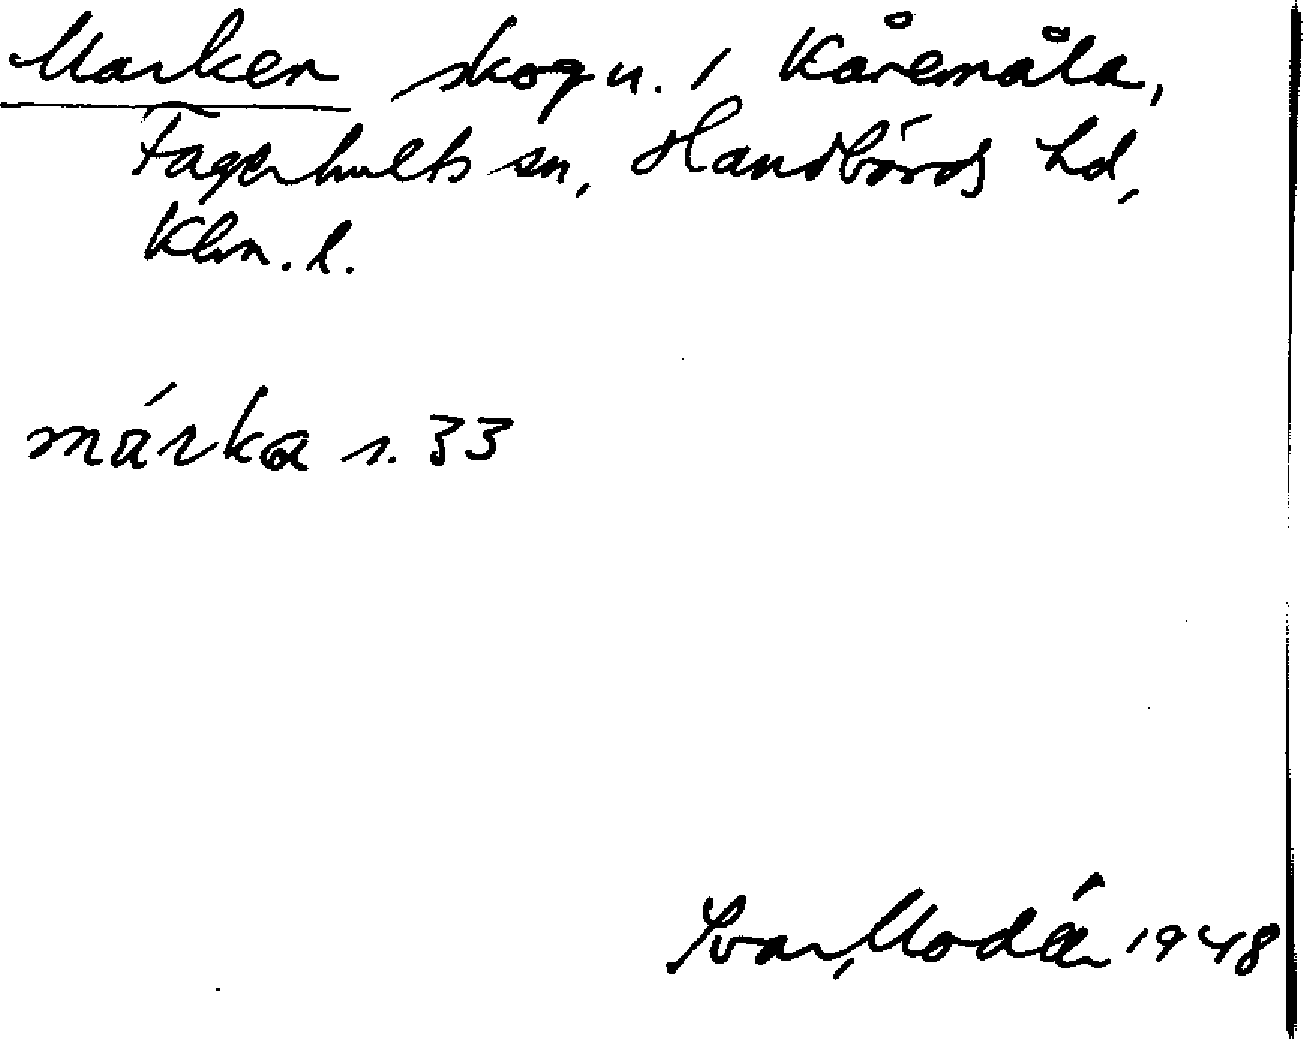 Marken skog u. / Kåremåla,
Fagerhults sn, Handbörds hd,
Klm. l.
márka s. 33
Ivar Modéer 1948